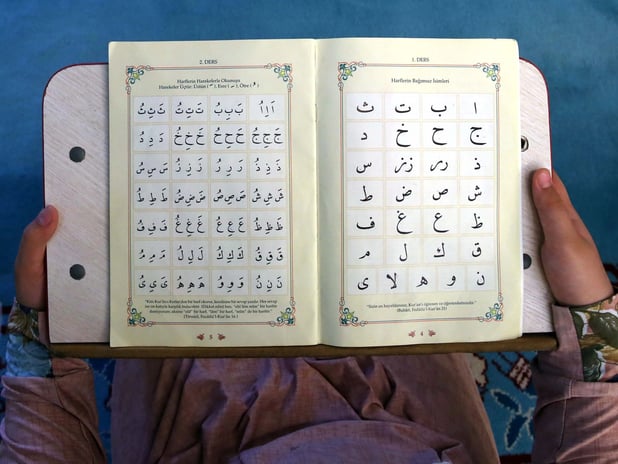 1. DERS
Harflerin Bağımsız İsimleri
ا ب ت ث
ج ح خ د
ذ رر زز س
ش ص ض ط
ظ ع غ ف
ق ك ل م
ن و ه لا ى
"Sizin en hayırlılarınız, Kur'an'ı öğrenen ve öğretenlerinizdir."
(Buhârî, Fedâilü'l-Kur'ân 21)
4
2. DERS
Harflerin Harekelerle Okunuşu
Harekeler Üçtür: Üstün ( َ ), Esre ( ِ ), Ötre ( ُ )
اَ اِ اُ بَ بِ بُ تَ تِ تُ ثَ ثِ ثُ
جَ جِ جُ حَ حِ حُ خَ خِ خُ دَ دِ دُ
ذَ ذِ ذُ رَ رِ رُ زَ زِ زُ سَ سِ سُ
شَ شِ شُ صَ صِ صُ ضَ ضِ ضُ طَ طِ طُ
ظَ ظِ ظُ عَ عِ عُ غَ غِ غُ فَ فِ فُ
قَ قِ قُ كَ كِ كُ لَ لِ لُ مَ مِ مُ
نَ نِ نُ وَ وِ وُ هَ هِ هُ ىَ ىِ ىُ
"Kim Kur'ân-ı Kerîm'den bir harf okursa, kendisine bir sevap yazılır. Her sevap
ise on katıyla karşılık bulacaktır. (Dikkat edin) ben, "elif lâm mîm" bir harftir
demiyorum; aksine "elif" bir harf, "lâm" bir harf, "mîm" de bir harftir."
(Tirmizî, Fezâilü'l-Kur'ân 16.)
5